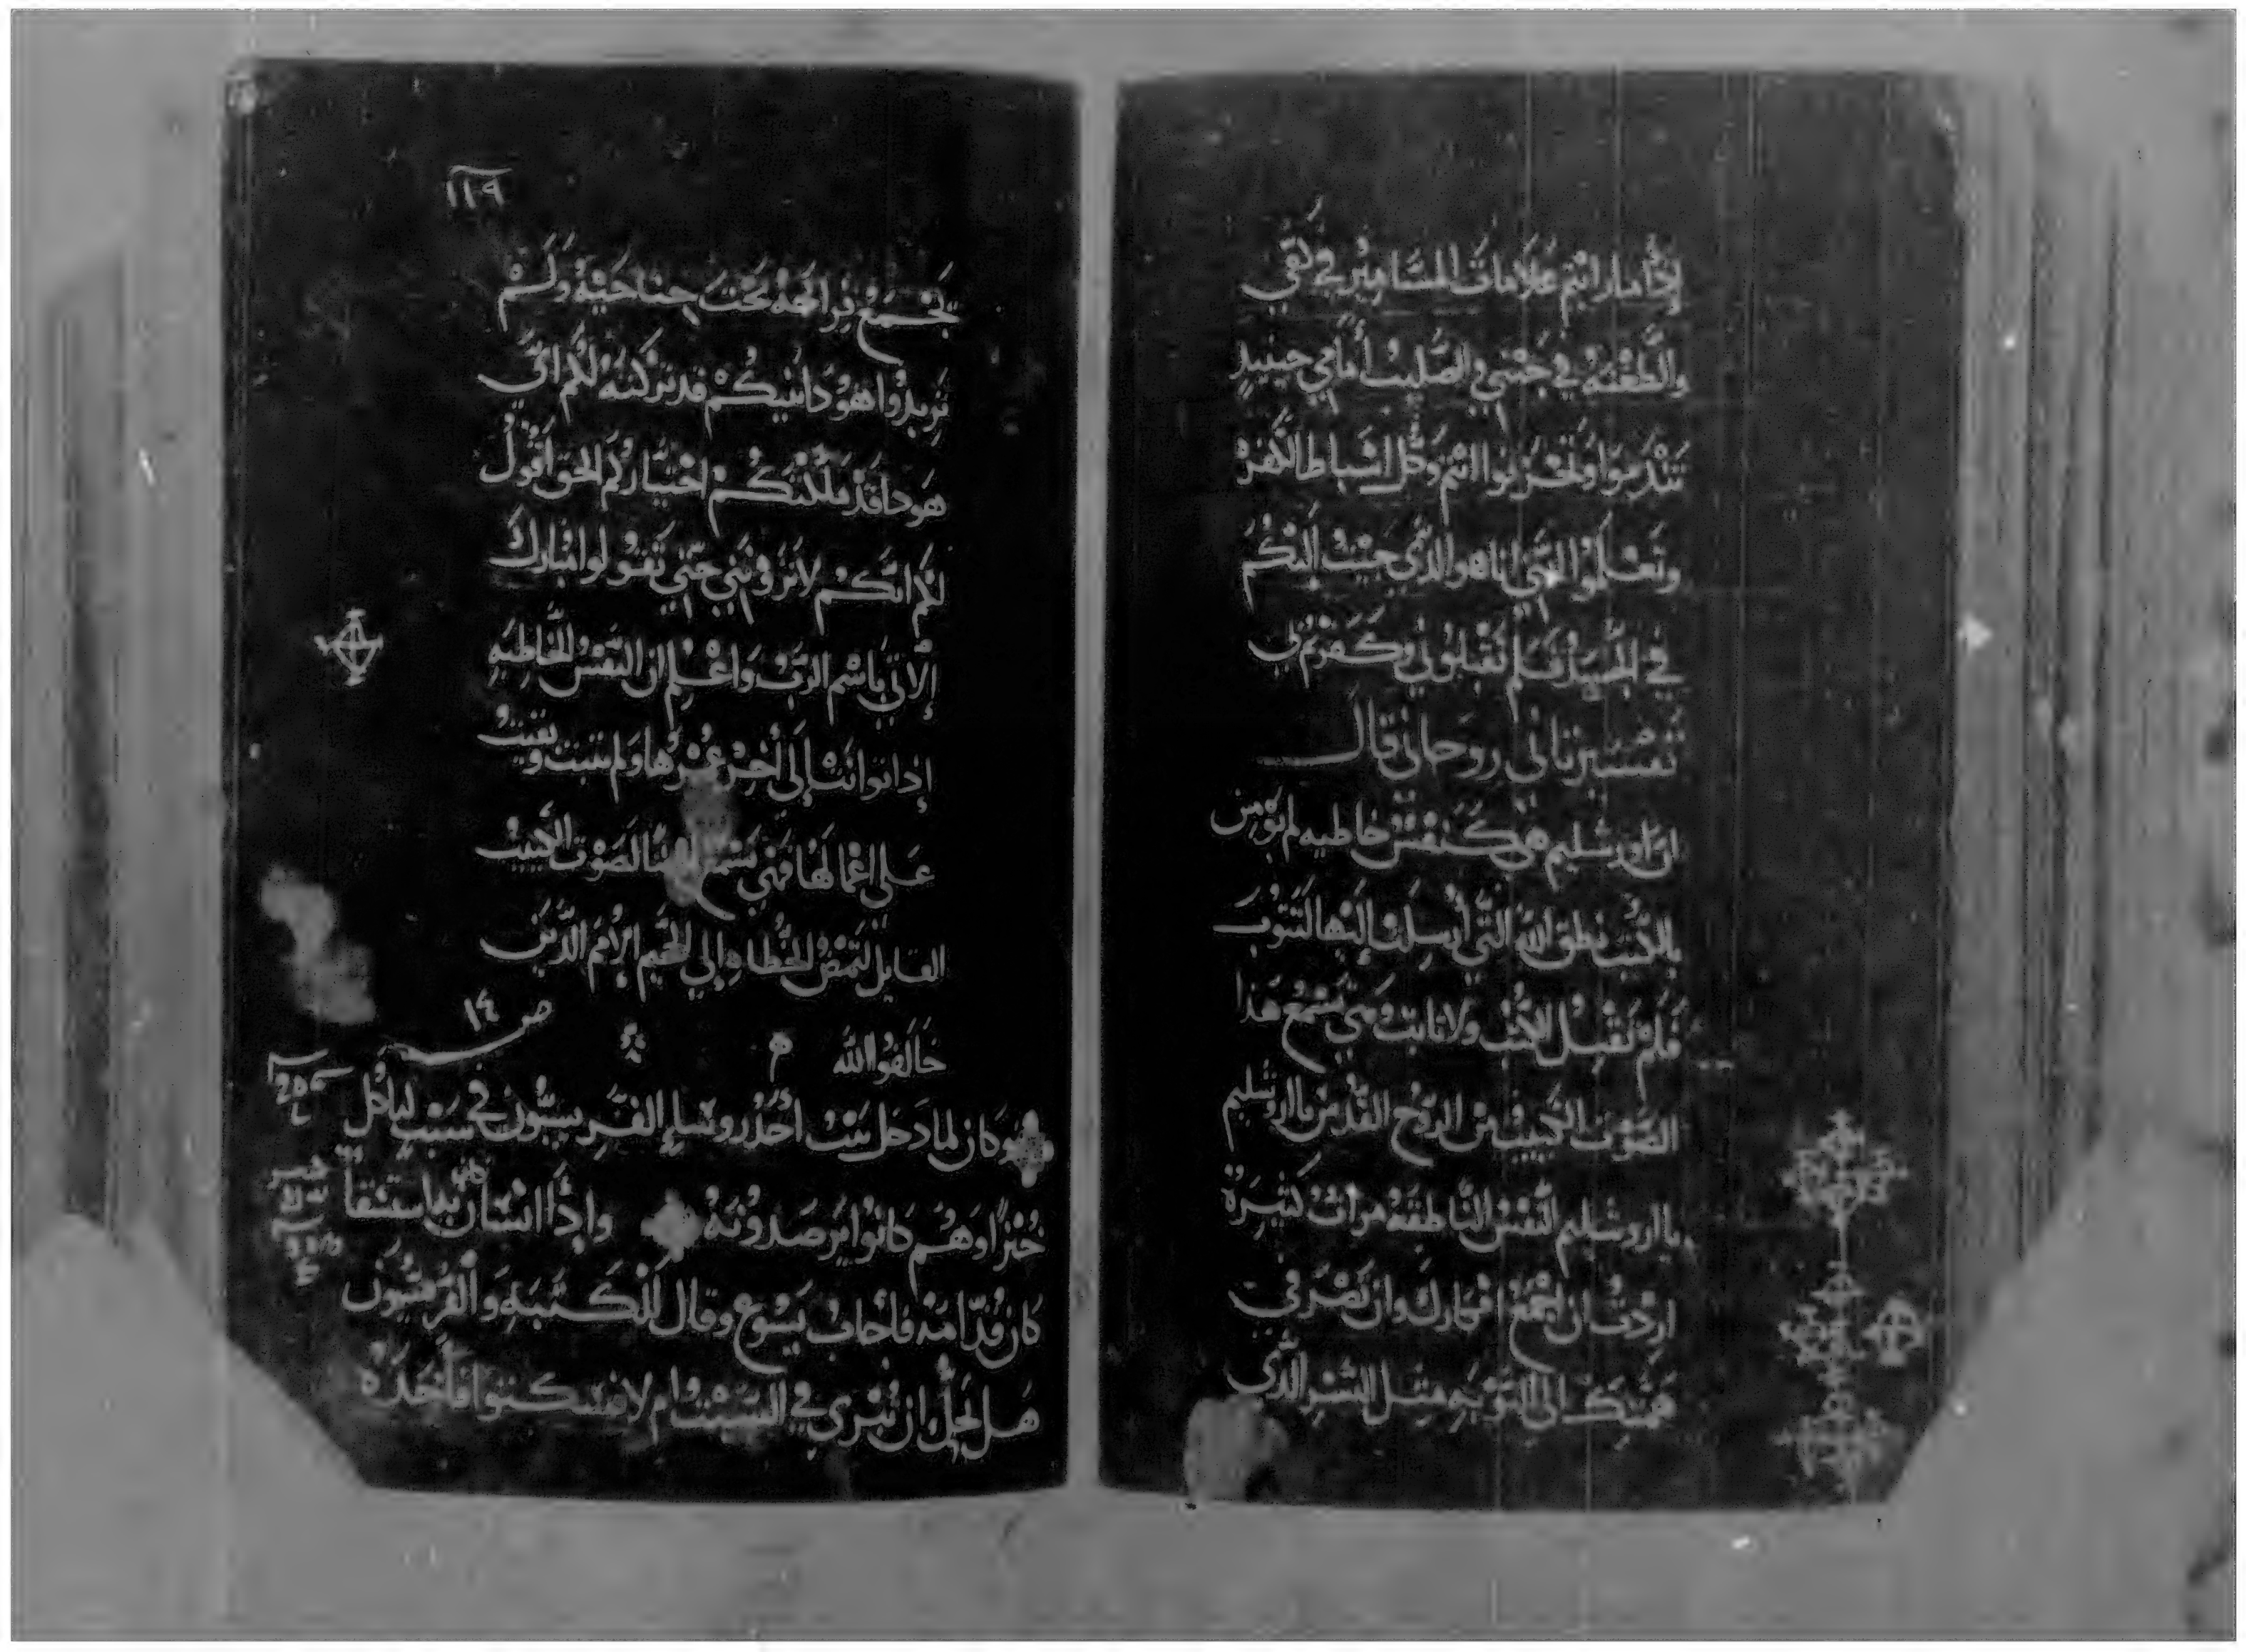 إذا ما رايتم علامات المسامير في كفي
والطعنه في جنبي والصليب أمامي حينيدٍ
تندموا وتحزنوا انتم وكل اسباط الكفر
وتعلموا انني اناهو الذي جيت إليكم
في الجسد فلم تقبلوني وكفرتم بي
تفسير تاني روحاني قال
ان اورشليم هي كنفس خاطيه لم تومن
بالكتب نطق الله التي أرسلت إليها لتتوب
فلم تقبل الكتب ولا تابت ومتي تسمع هذا
الصوت الكييب من الروح القدس يا اروشليم
يا اروشليم النفس الناطقه مرات كتيرة
اردت ان اجمع افكارك وان تصرفي
همتك الى التوبه مثل النسر الذي
١١٩
يجمع فراخه تحت جناحيه ولم
تريدوا هوذا بيتكم قد تركته لكم اني
هوذا قد ملكتكم اختياركم الحق اقول
لكم انكم لا تروني حتي تقولوا مبارك
إلاتي باسم الرب واعلم ان النفس الخاطيه
إذا توانت إلي أخر عمرها ولم تتبت وتقيت
علي اعمالها فهي تسمع الصوت الكييب
القايل لتمض الخطاه إلي الجحيم الامم الدين
خالفوا الله
ص ١٤
وكان لما دخل بيت أحد روسا الفريسيون في سبت لياكل
خبزًا وهم كانوا يرصدونه وإذا انسان به استسقا
كان قدامه فاجاب يسوع وقال للكتبة والفريسيون
هل يحل ان نبري في السبت ام لا فسكتوا فأخذه